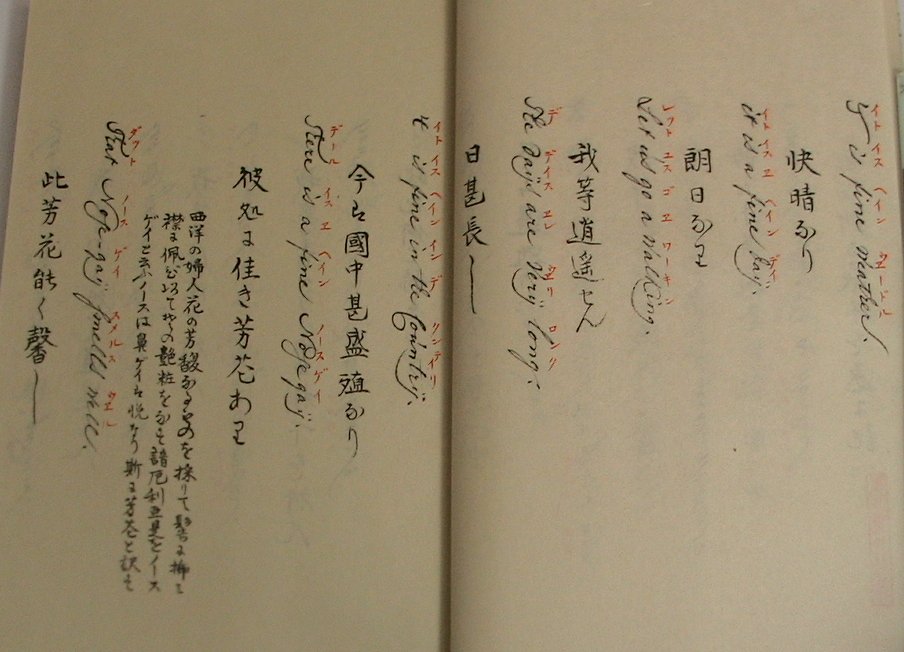 イト イス ヘイン ウーエル
It is fine Weather.
快晴なり
イト イス エ ヘイン デイ
it is a fine day.
朗日なり
レット ユス ゴ エ ワーキン
Let us go a Walking.
我等逍遥せん
デ デイス エル ウエリ ロング
The days are Very long.
日甚長し
イト イス ヘイン イン デ クンテイリ
it is fine in the Country.
今は國中甚盛殖なり
デール イス エ ヘイン ノースゲイ
There is a fine Nosegay.
彼処に佳き芳花あり
西洋の婦人花の芳馥なるものを採りて髻に挿し
襟に佩びて の艶粧をなす諳厄利亜是をノース
ゲイと云ふノースは鼻ゲイは悦なり斯に芳花と訳す
ダット ノース ゲイ スメルス ウエル
That Nose-gay smells well.
此芳花能く馨し